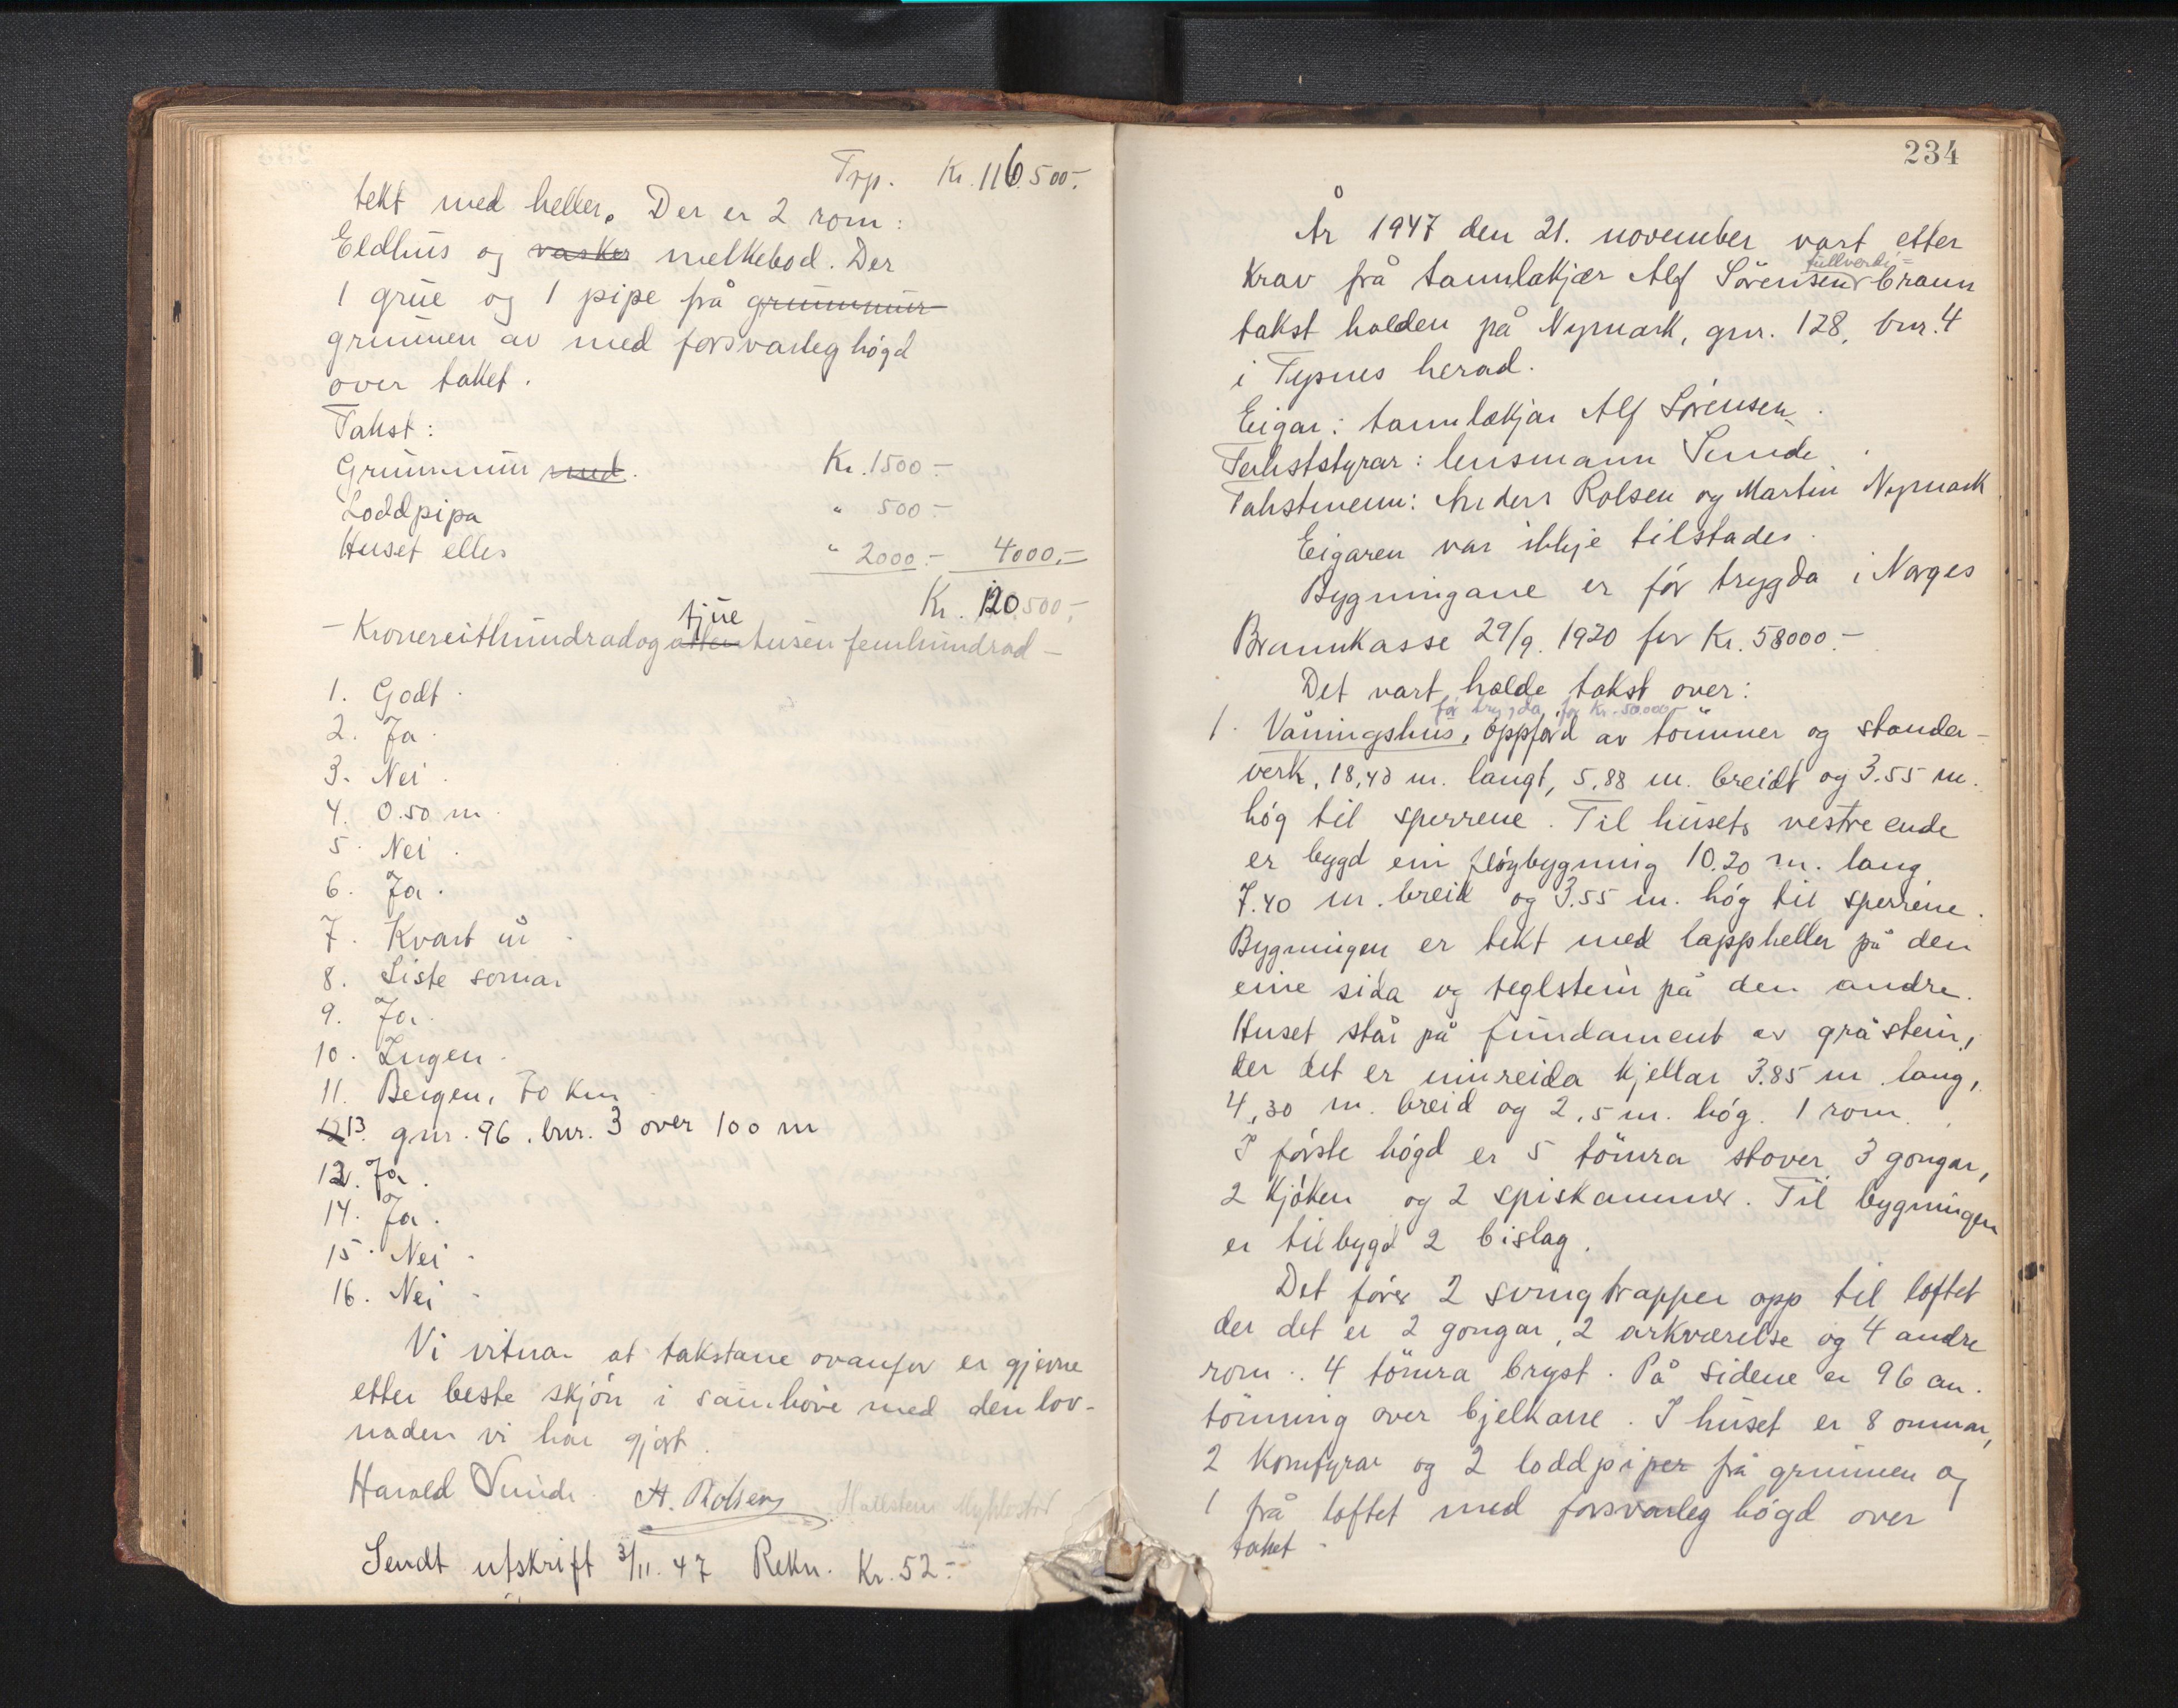 Trp. Kr. 116.500.-
tekt med heller. Der er 2 rom:
Eldhus og vasker melkebod. Der
1 grue og 1 pipe frå grunnmur
grunnen av med forsvarleg högd
over taket.
Takst:
Grunnmur med. Kr. 1500.-
Loddpipa " 500.-
Huset elles " 2000.- 4000.-
Kr. 120.500.-
tjue
- Kronereithundradogattentusen femhundrad -
1. Godt.
2. Ja.
3. Nei.
4. 0.50 m.
5. Nei.
6. Ja.
7. Kvart år.
8. Siste somar
9. Ja.
10. Ingen.
11. Bergen, 70 km
13. gnr. 96, bnr. 3 over 100 m
12. Ja.
14. Ja.
15. Nei.
16. Nei.
Vi vitnar at takstane ovanfor er gjevne
etter beste skjön i samhöve med den lov-
naden vi har gjort.
Harald Sunde. A. Rolsen Hallstein Myklestad
Sendt utskrift 3/11. 47 Rekn. Kr. 52.-
234
År 1947 den 21. november vart etter
fullverdi-
krav frå tannlækjar Alf Sörensen brann
takst halden på Nymark, gnr. 128, bnr. 4
i Tysnes herad.
Eigar: tannlækjar Alf Sörensen.
Takststyrar: lensmann Sunde.
Takstmenn: Anders Rolsen og Martin Nymark
Eigaren var ikkje tilstades.
Bygningane er för trygda i Norges
Brannkasse 29/9. 1920 for Kr. 58000.-
Det vart halde takst over:
för trygda for Kr. 50.000.-
1. Våningshus, oppförd av tömmer og stander-
verk, 18,40 m. langt, 5,88 m. breidt og 3.55 m.
hög til sperrene. Til husets vestre ende
er bygd ein flöybygning 10.20 m. lang
7.40 m. breid og 3.55 m. hög til sperrene.
Bygningen er tekt med lappheller på den
eine sida og teglstein på den andre.
Huset står på fundament av gråstein,
der det er innreida kjellar 3.85 m. lang,
4,30 m. breid og 2,5 m. hög. 1 rom.
I förste högd er 5 tömra stover, 3 gongar,
2 kjöken og 2 spiskammer. Til bygningen
er tilbygd 2 bislag.
Det förer 2 svingtrapper opp til loftet
der det er 2 gongar, 2 arkværelse og 4 andre
rom. 4 tömra bryst. På sidene er 96 cm.
tömring over bjelkane. I huset er 8 omnar,
2 komfyrar og 2 loddpiper frå grunnen og
1 frå loftet med forsvarleg högd over
taket.